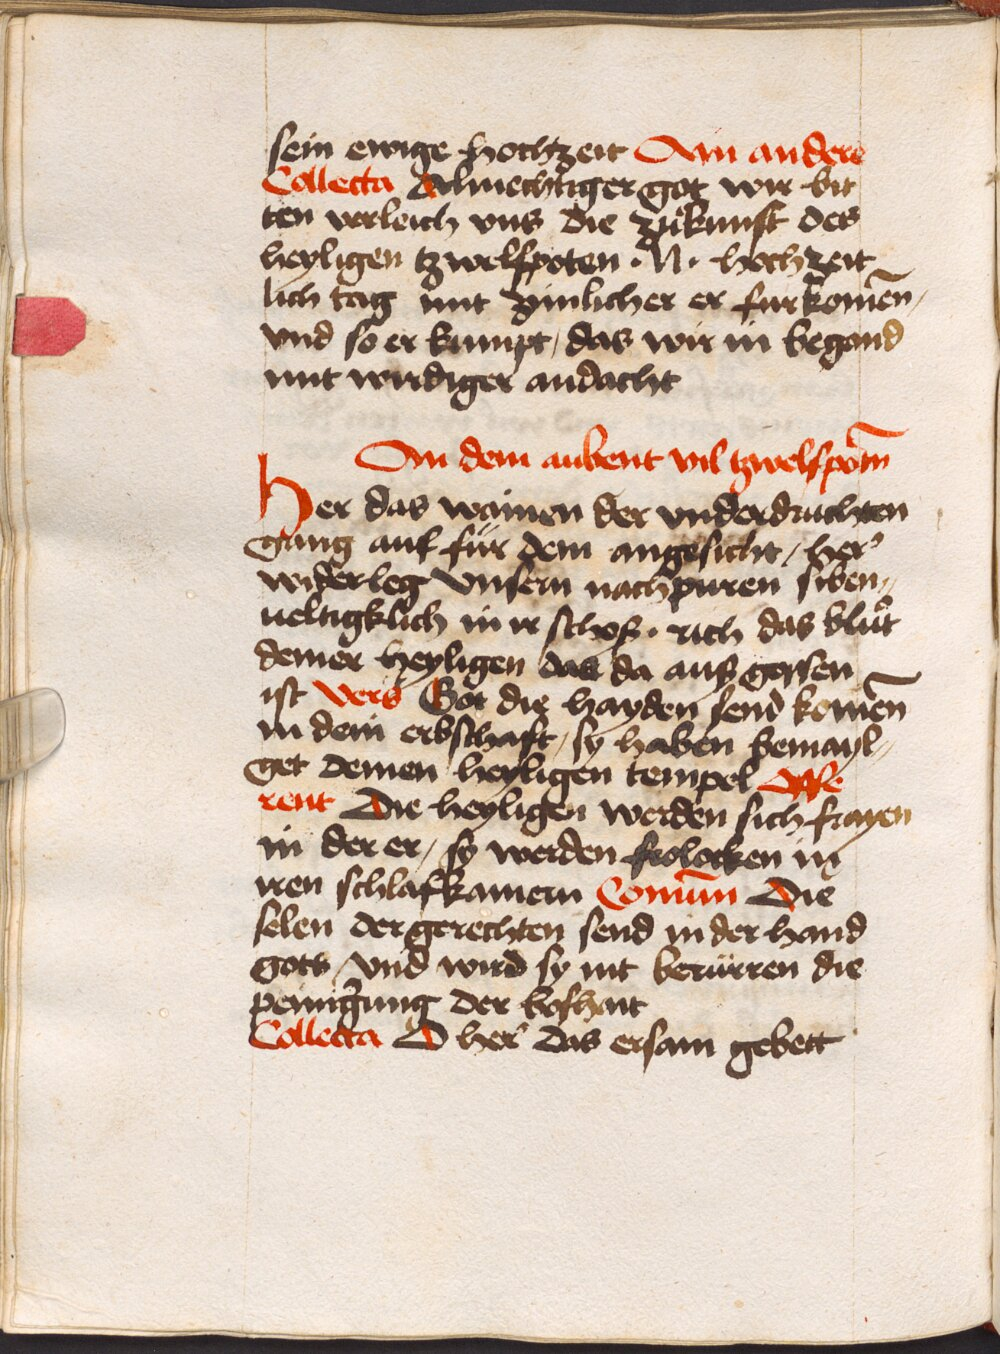 sein ewige hochtzeit Ain andere
Collecta Almechtiger got wir bit
ten verleich vns die zůkunft des
heyligen tzwelfpoten · N · hochzeit
lich tag mit zimlicher er fürkomēn,
vnd so er kumpt, das wir in begand
mit wirdiger andacht
An dem aubent vil tzwelfpotn̄
Her das wainen der vnderdruchten
gang auf für dein angesicht, her
widerleg vnsern nachpuren siben,,
ueltigklich in ir schoß. rich das blůt
deiner heyligen das da auß gossen
ist Vers Got die hayden send komēn
in dein erbschaft, sy haben bemayl,,
get deinen heyligen tempel Offe
rent Die heyligen werden sich frayen
in der er, sy werden frolocken in
iren schlafkamern Comūn Die
selen der gerechten send in der hand
gots, vnd wird sy nit berürren die
peinigung der boshait
Collecta O her das ersam gebett